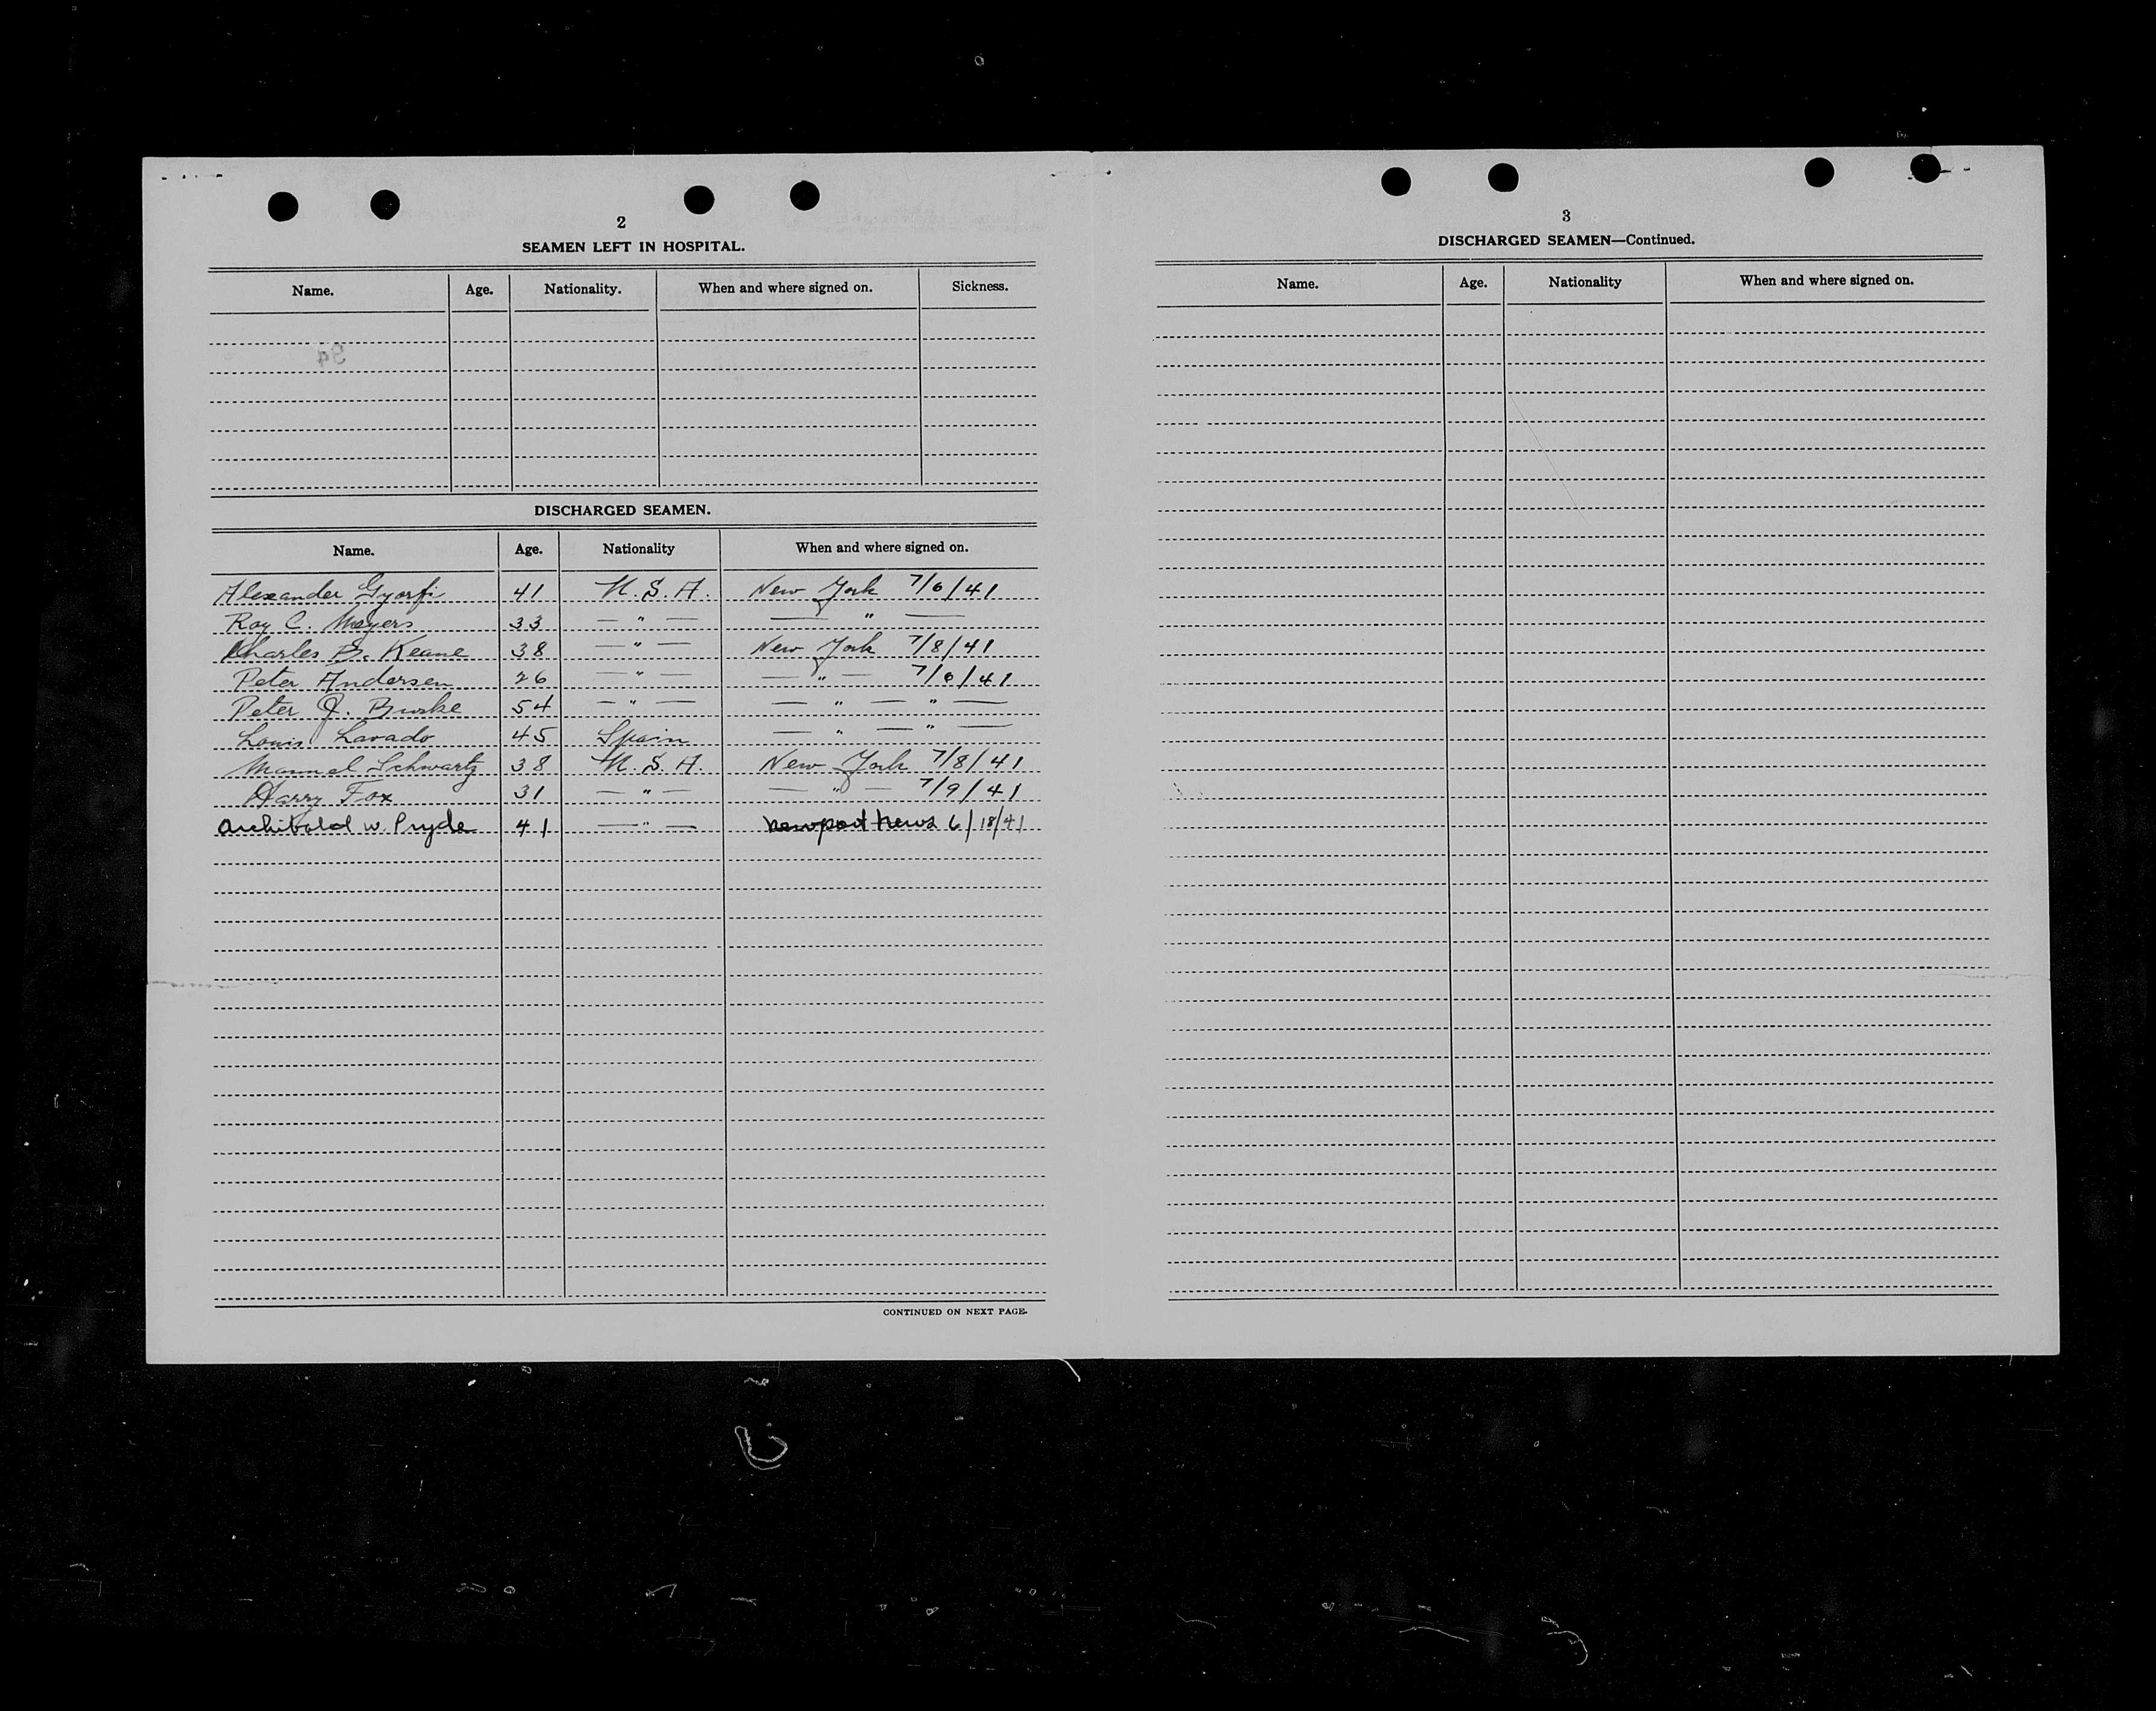 2
SEAMEN LEFT IN HOSPITAL.
Name. Age. Nationality. When and where signed on. Sickness.
DISCHARGED SEAMEN.
Name. Age. Nationality When and where signed on.
Alexander Gyorfi 41 U.S.A. New York 7/6/41
Roy C. Meyers 33 — " — — " —
Charles B. Keane 38 — " — New York 7/8/41
Peter Andersen 26 — " — — " — 7/6/41
Peter J. Burke 54 — " — — " — " —
Louis Lavado 45 Spain — " — " —
Manuel Schwartz 38 U.S.A. New York 7/8/41
Harry Fox 31 — " — — " — 7/9/41
Archibald W. Pryde 41 — " — Newport News 6/18/41
CONTINUED ON NEXT PAGE.
3
DISCHARGED SEAMEN—Continued.
Name. Age. Nationality When and where signed on.